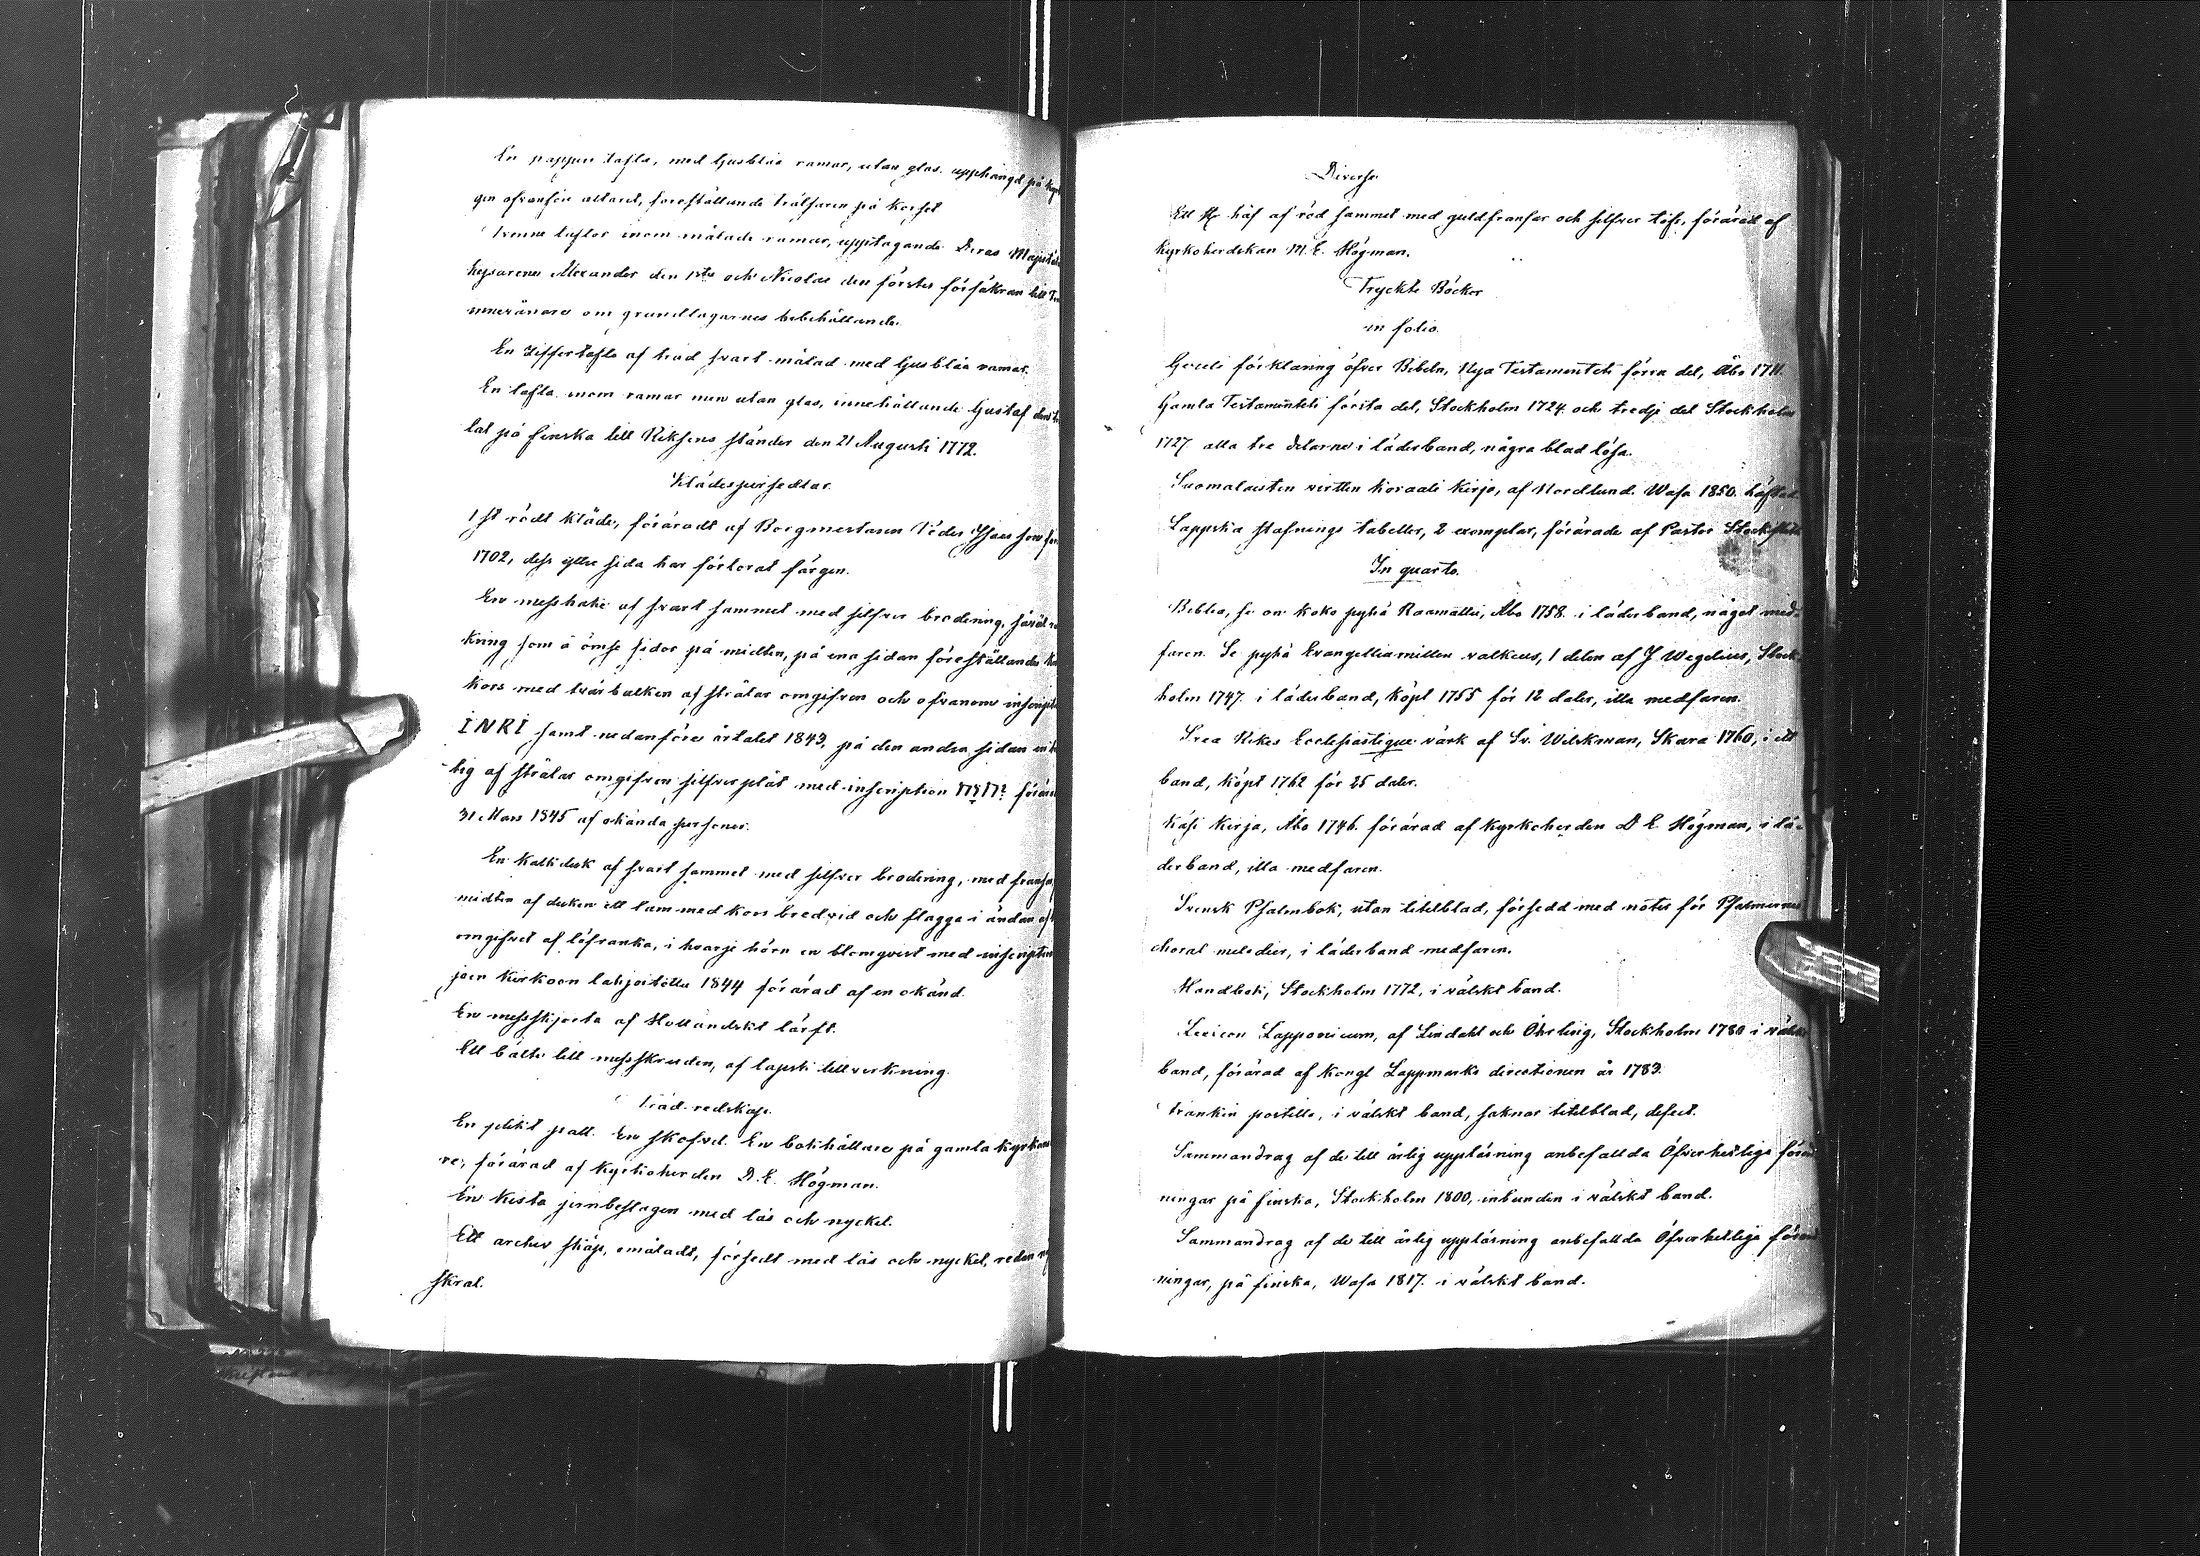 En pappen tafla, med ljusblåa ramar, utan glas, upphängd på
gen ofvanför altaret, föreställande Frälsaren på Korset
Tvenne taflor inom målade ramar, upptagande Deras
Kejsarenes Alexander den 1sta och Nicolai den förstes försäkran till
innevånare om grundlagarnes bebehållande.
En Ziffertafla af träd svart målad med ljusblåa ramar.
En tafla inom ramar men utan glas, innehållande Gustaf
tal på finska till Riksens ständer den 21 Augusti 1772.
Klädespersedlar.
1 st rödt kläde, föräradt af Borgmestaren Peder
1702, dess yttre sida har förlorat färgen.
En messhake af svart sammet med silfver brodering,
kring som å ömse sidor på midten, på ena sidan föreställande
kors med tvär balken af strålar omgifven och ofvanom
INRI samt nedanföre årtalet 1843, på den andra sidan
lig af strålar omgifven silfverplåt med inscription יהוה
31 Mars 1845 af okända personer.
En Kalkduk af svart sammet med silfver brodering, med
midten af duken ett lam med kors bredvid och flagga i ändan
omgifvet af löfranka, i hvarje hörn en blomqvist med
joen Kirkoon lahjoitettu 1844 förärad af en okänd.
En messskjorta af Holländskt lärft.
Ett bälte till messskruden, af lapsk tillverkning.
Träd redskap.
En plikt pall. En skofvel. En bokhållare på gamla
re, förärad af Kyrkoherden D. E. Högman.
En Kista jernbeslagen med lås och nyckel.
Ett archiv skåp, omåladt, försedt med lås och nyckel, redan
skral.
Diverse
Ett håf af röd sammet med guldfransar och silfver tofs, förärad af
Kyrkoherdskan M. E. Högman.
Tryckte Böcker
in folio.
Gezelii förklaring öfver Bibeln, Nya Testamentets förra del, Åbo
Gamla Testamentets första del, Stockholm 1724 och tredje del Stockholm
1727 alla tre delarne i läderband, några blad lösa.
Suomalaisten virtten Koraali Kirja, af Nordlund. Wasa 1850. häftad
Lappska stafnings tabeller, 2 exemplar, förärade af Pastor
In quarto.
Biblia, se on: Koko pyhä Raamattu, Åbo 1758. i läderband, något med-
faren. Se pyhä Evangelliumillen valkeus, 1 delen af J Wegelius, Stock-
holm 1747. i läderband, köpt 1755 för 12 daler, illa medfaren.
Svea Rikes Ecclesiastique värk af Sv. Wilskman, Skara 1760, i ett
band, köpt 1762 för 25 daler.
Käsi Kirja, Åbo 1746. förärad af Kyrkoherden D E. Högman, i lä-
derband, illa medfaren.
Svensk Psalmbok, utan titelblad, försedd med noter för Psalmernes
choral melodier, i läderband medfaren.
Handbok, Stockholm 1772, i välskt band.
Lexicon Lapponicum, af Lindahl och Öhrling, Stockholm 1780 i välskt
band, förärad af Kongl Lappmarks directionen år 1783.
Frankin postilla, i välskt band, saknar titelblad, defect.
Sammandrag af de till årlig uppläsning anbefallda Öfverhetliga
ningar på finska, Stockholm 1800, inbunden i välskt band.
Sammandrag af de till årlig uppläsning anbefallda Öfverhetliga
ningar, på finska, Wasa 1817. i välskt band.